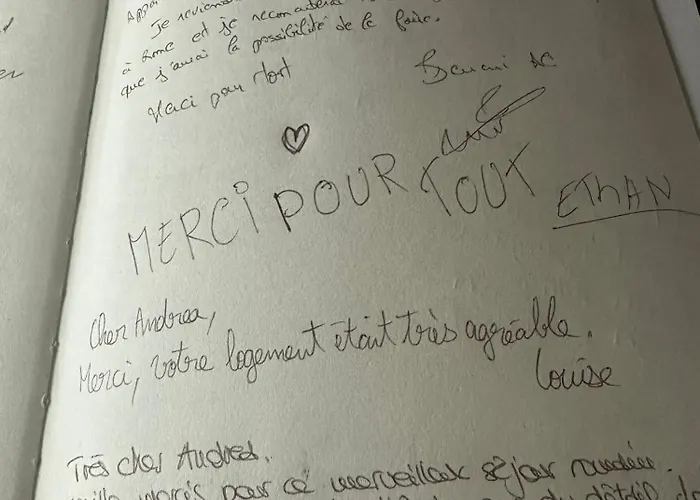 Je reviend
à Rome et je recommanderai
que j'aurai la possibilité de le faire.
Merci pour tout
♡
MERCI POUR TOUT
ETHAN
Cher Andrea,
Merci, votre logement était très agréable.
Louise
Très cher Andrea.
mille mercis pour ce merveilleux séjour